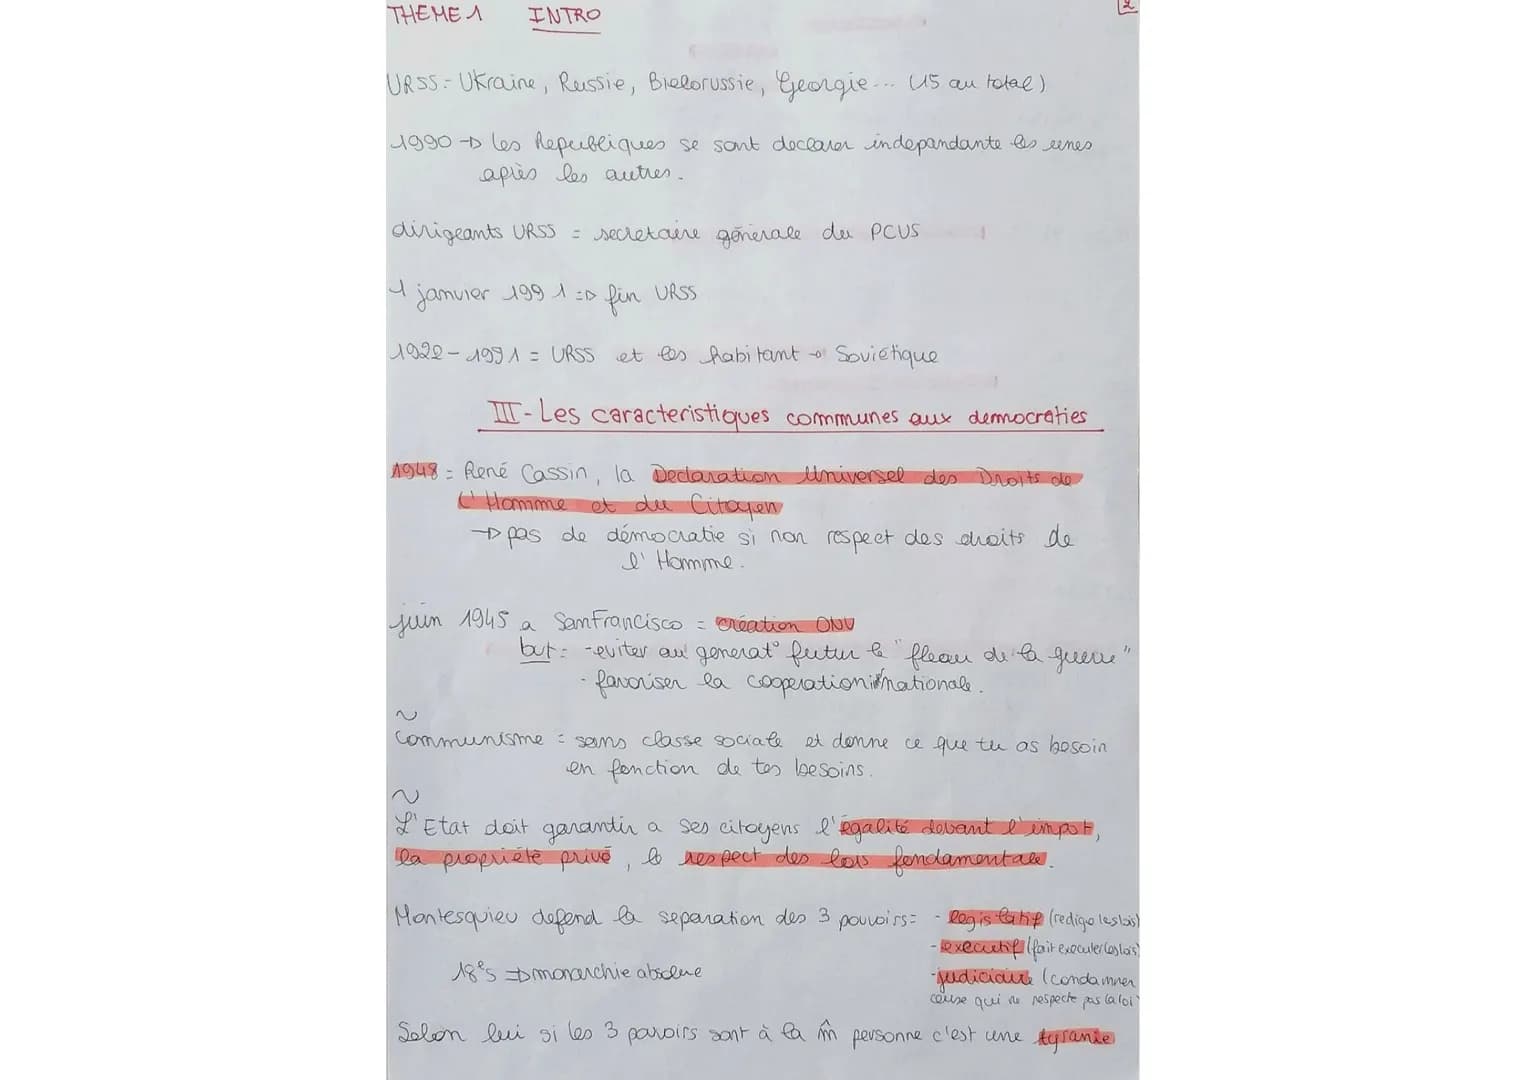 THEME 1 INTRO 2
URSS = Ukraine, Russie, Bielorussie, Georgie... (15 au total)
1990 → les Republiques se sont declarer indepandante les unes
après les autres.
dirigeants URSS = secretaire génerale du PCUS
1 janvier 1991 => fin URSS
1922-1991 = URSS et les habitant → Soviétique
III - Les caracteristiques communes aux democraties
1948 = René Cassin, la Declaration Universel des Droits de
l'Homme et du Citoyen
→ pas de démocratie si non respect des droits de
l'Homme.
juin 1945 a SanFrancisco = création ONU
but = - eviter au generat° futur le "fleau de la guerre"
- favoriser la cooperation internationale.
~
Communisme = sans classe sociale et donne ce que tu as besoin
en fonction de tes besoins.
~
L'Etat doit garantir a ses citoyens l'égalité devant l'impot,
la propriété privé, le respect des lois fondamentale.
Montesquieu defend la separation des 3 pouvoirs = - legislatif (redige les lois)
- executif (fait executer les lois)
18e s => monarchie absolue - judiciaire (condamner
ceuse qui ne respecte pas la loi
Selon lui si les 3 pavoirs sont à la m̂ personne c'est une tyranie